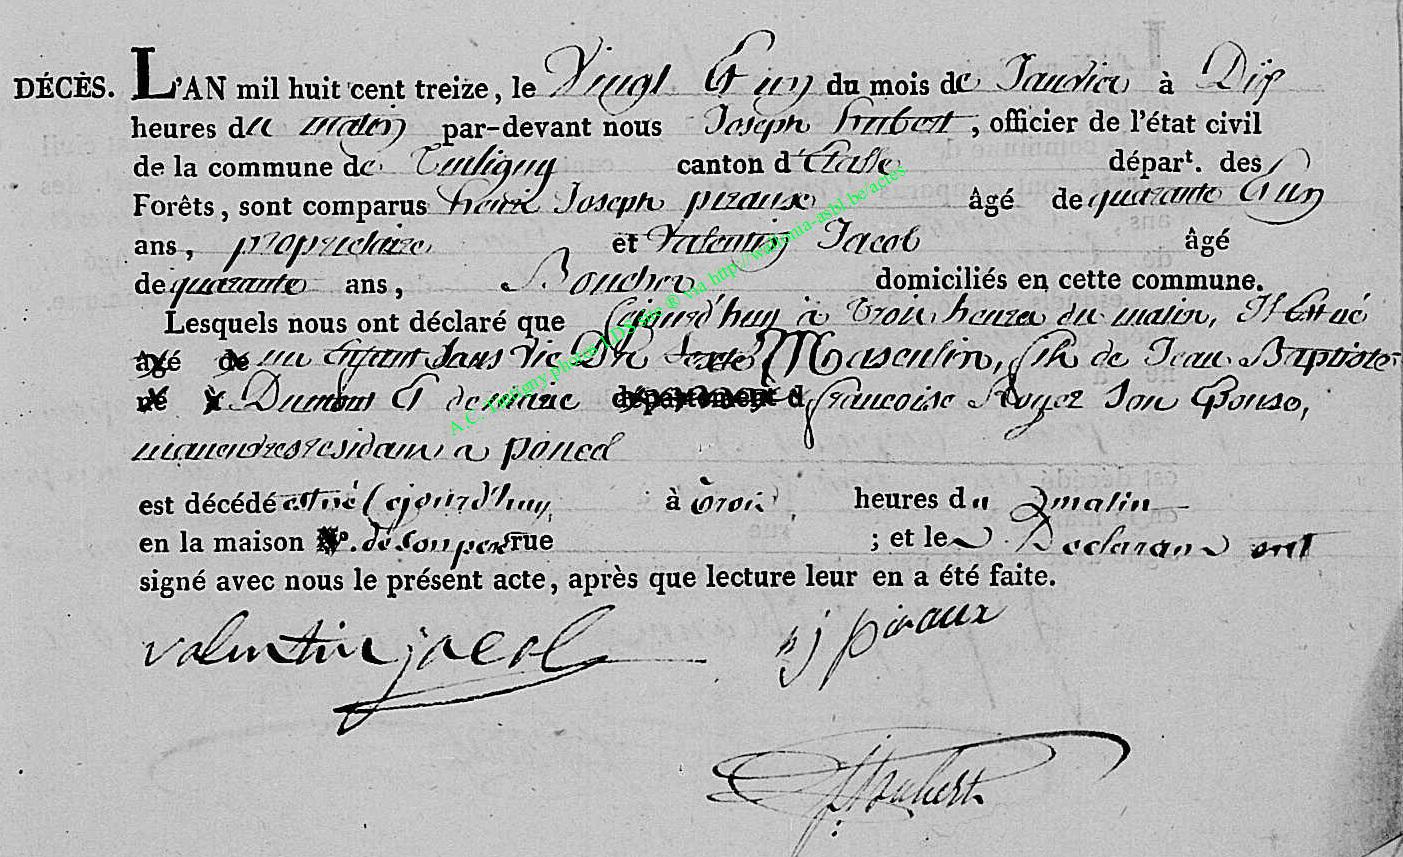 DÉCÈS. L'AN mil huit cent treize, le Vingt Et un du mois de Janvier à Dix
heures du matin par-devant nous Joseph hubert, officier de l'état civil
de la commune de Tintigny canton d'Etalle départ. des
Forêts, sont comparus henri Joseph piraux âgé de quarante Et un
ans, proprietaire et Valentin Jacob âgé
de quarante ans, Boucher domiciliés en cette commune.
Lesquels nous ont déclaré que Cejourd'huy à trois heures du matin, Il Est né
âgé de un Enfant Sans vie Du Sexe Masculin, fils de Jean Baptiste
né Dumont Et de département d francoise Royer Son Epouse,
residans a poncel
est décédé est né Cejourd'huy à trois heures du matin
en la maison N°. de Son pere rue ; et les Declarans ont
signé avec nous le présent acte, après que lecture leur en a été faite.
valentin jacob hj piraux
JHubert
A.C. Tintigny photos LDS ® via http://wallonia-asbl.be/actes